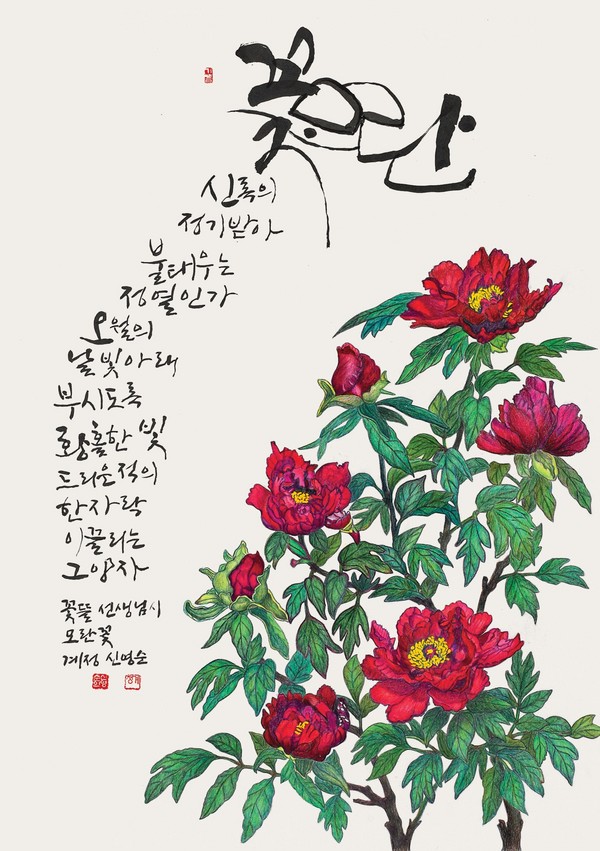 꽃모란
신록의
정기받아
불태우는
정열인가
오월의
날빛아래
부시도록
황홀한 빛
드리운적의
한자락
이끌리는
그양자
꽃뜰 선생님시
모란꽃
계정 신영순